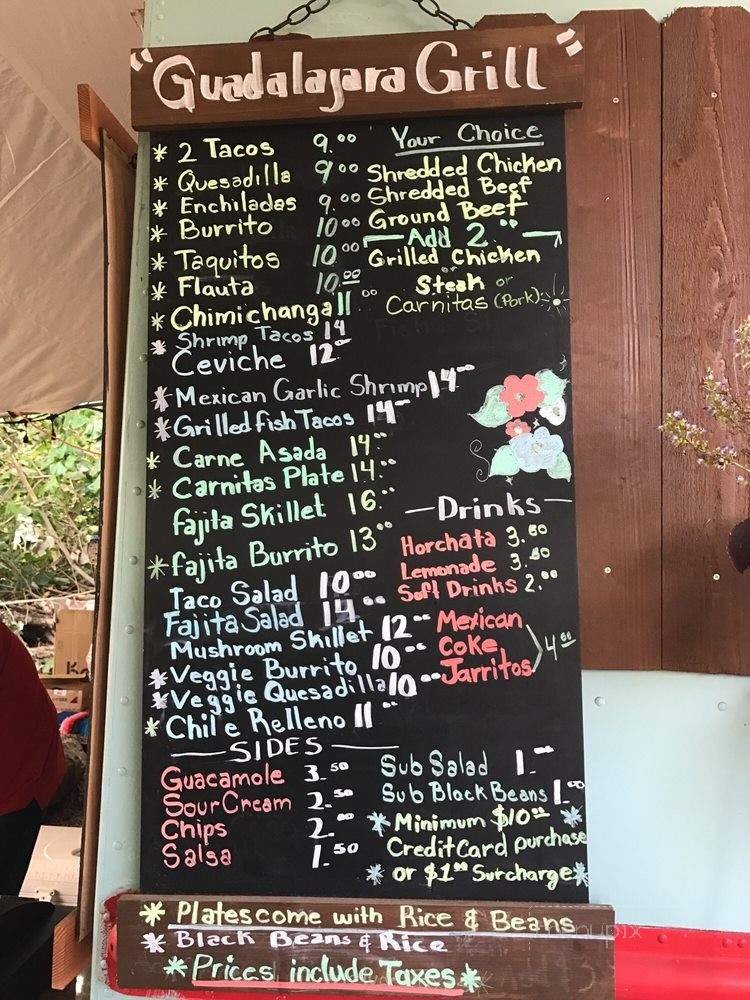 "Guadalajara Grill"
* 2 Tacos 9.00
* Quesadilla 9.00
* Enchiladas 9.00
* Burrito 10.00
* Taquitos 10.00
* Flauta 10.00
* Chimichanga 11.00
* Shrimp Tacos 14
Ceviche 12.00
* Mexican Garlic Shrimp 14
* Grilled fish Tacos 14
* Carne Asada 14.00
* Carnitas Plate 14.00
fajita Skillet 16.00
* fajita Burrito 13.00
Taco Salad 10.00
Fajita Salad 14.00
Mushroom Skillet 12.00
* Veggie Burrito 10.00
* Veggie Quesadilla 10.00
* Chile Relleno 11.00
Your Choice
Shredded Chicken
Shredded Beef
Ground Beef
Add 2.00
Grilled Chicken
or
Steak or
Carnitas (Pork)
Drinks
Horchata 3.50
Lemonade 3.50
Soft Drinks 2.00
Mexican
Coke
Jarritos 4.00
SIDES
Guacamole 3.50
Sour Cream 2.50
Chips 2.00
Salsa 1.50
Sub Salad 1.00
Sub Black Beans 1.00
* Minimum $10.00 *
Credit Card purchase
* or $1.00 Surcharge *
* Plates come with Rice & Beans
* Black Beans & Rice
* Prices include Taxes *